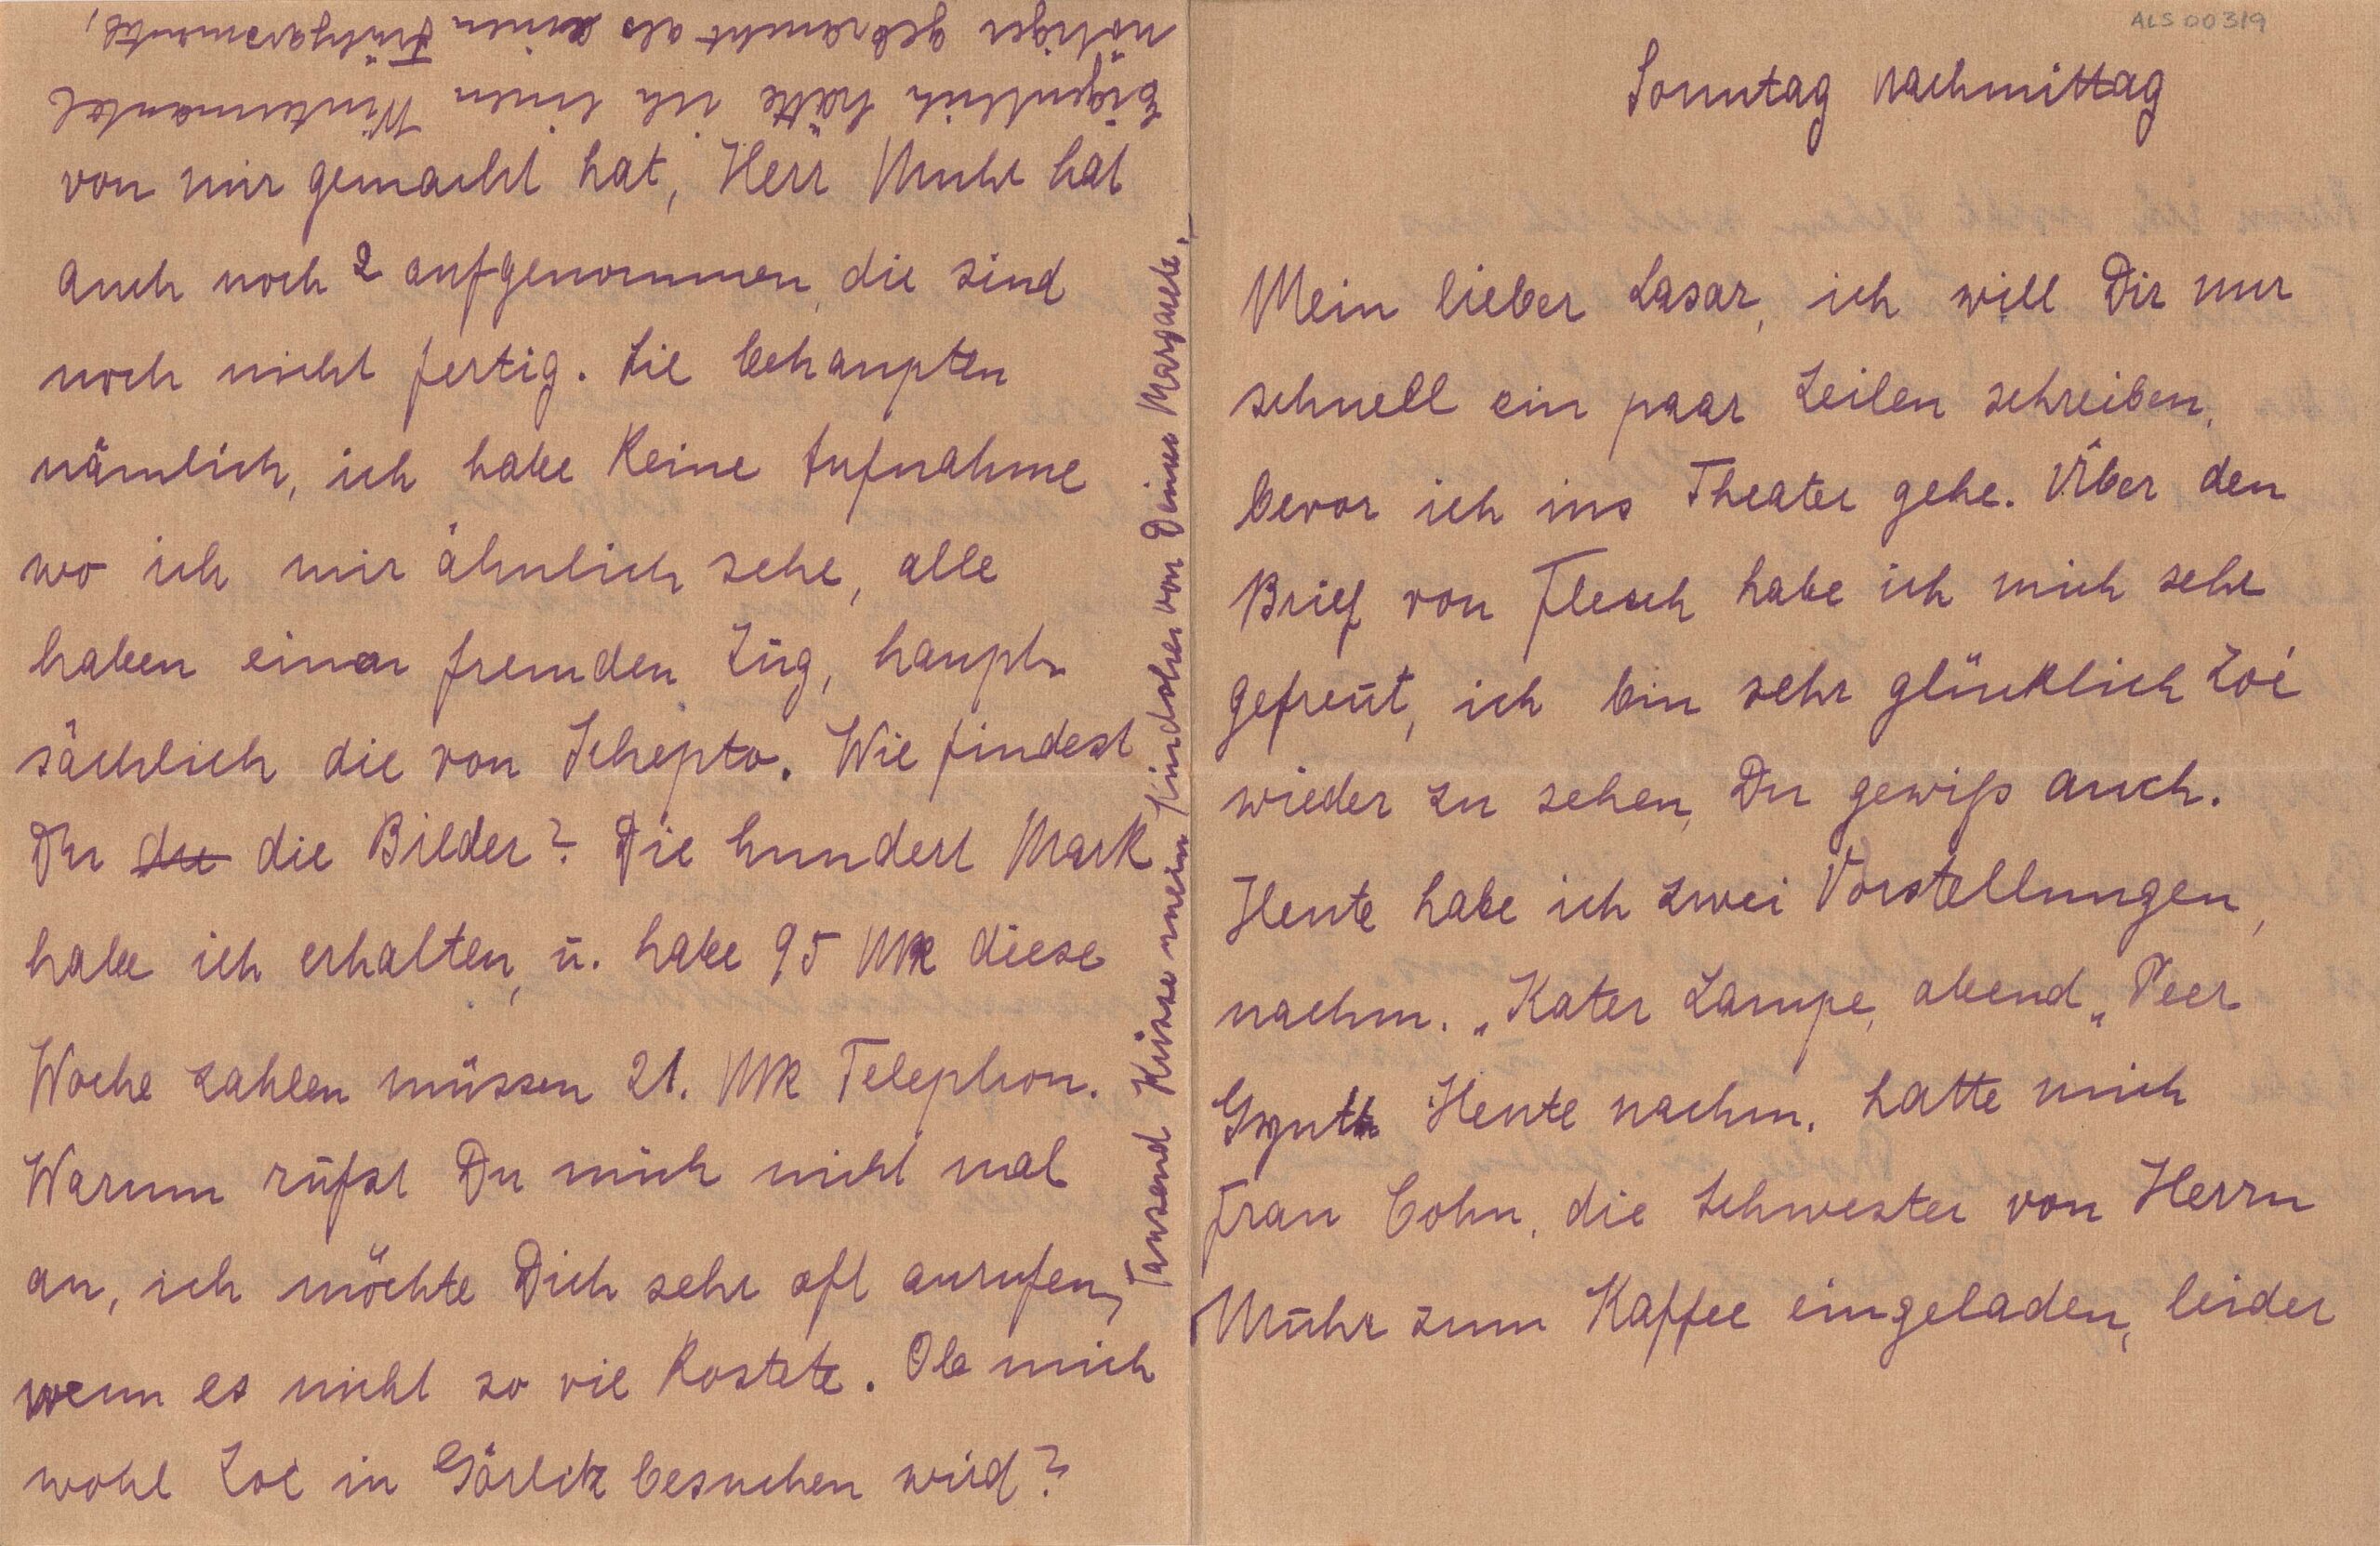 ALS 00319
Sonntag nachmittag
Mein lieber Lasar, ich will Dir nur
schnell ein paar Zeilen schreiben,
bevor ich ins Theater gehe. Über den
Brief von Flesch habe ich mich sehr
gefreut, ich bin sehr glücklich Zoé
wieder zu sehen, Du gewiß auch.
Heute habe ich zwei Vorstellungen,
nachm. „Kater Lampe, abend „Peer
Gynt" Heute nachm. hatte mich
Frau Cohn, die Schwester von Herrn
Muhr zum Kaffee eingeladen, leider
von mir gemacht hat, Herr Muhr hat
auch noch 2 aufgenommen, die sind
noch nicht fertig. Sie behaupten
nämlich, ich habe keine Aufnahme
wo ich mir ähnlich sehe, alle
haben einen fremden Zug, haupt-
sächlich die von Schepto. Wie findest
Du du die Bilder? Die hundert Mark
habe ich erhalten, u. habe 95 Mk diese
Woche zahlen müssen 21. Mk Telephon.
Warum rufst Du mich nicht mal
an, ich möchte Dich sehr oft anrufen,
wenn es nicht so viel kostete. Ob mich
wohl Zoe in Görlitz besuchen wird?
Eigentlich hätte ich einen Wintermantel
nötiger gebraucht als einen Frühjarsmantel,
Tausend Küsse mein Lieber von Deiner Margarete.